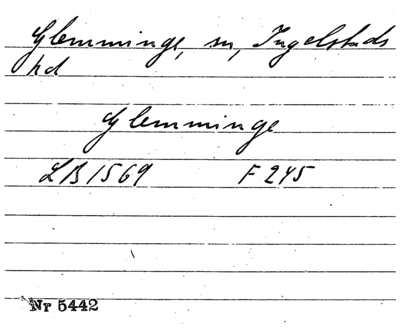 Glemminge, sn, Ingelstads
hd
Glemminge
LB 1569 F 245
Nr 5442